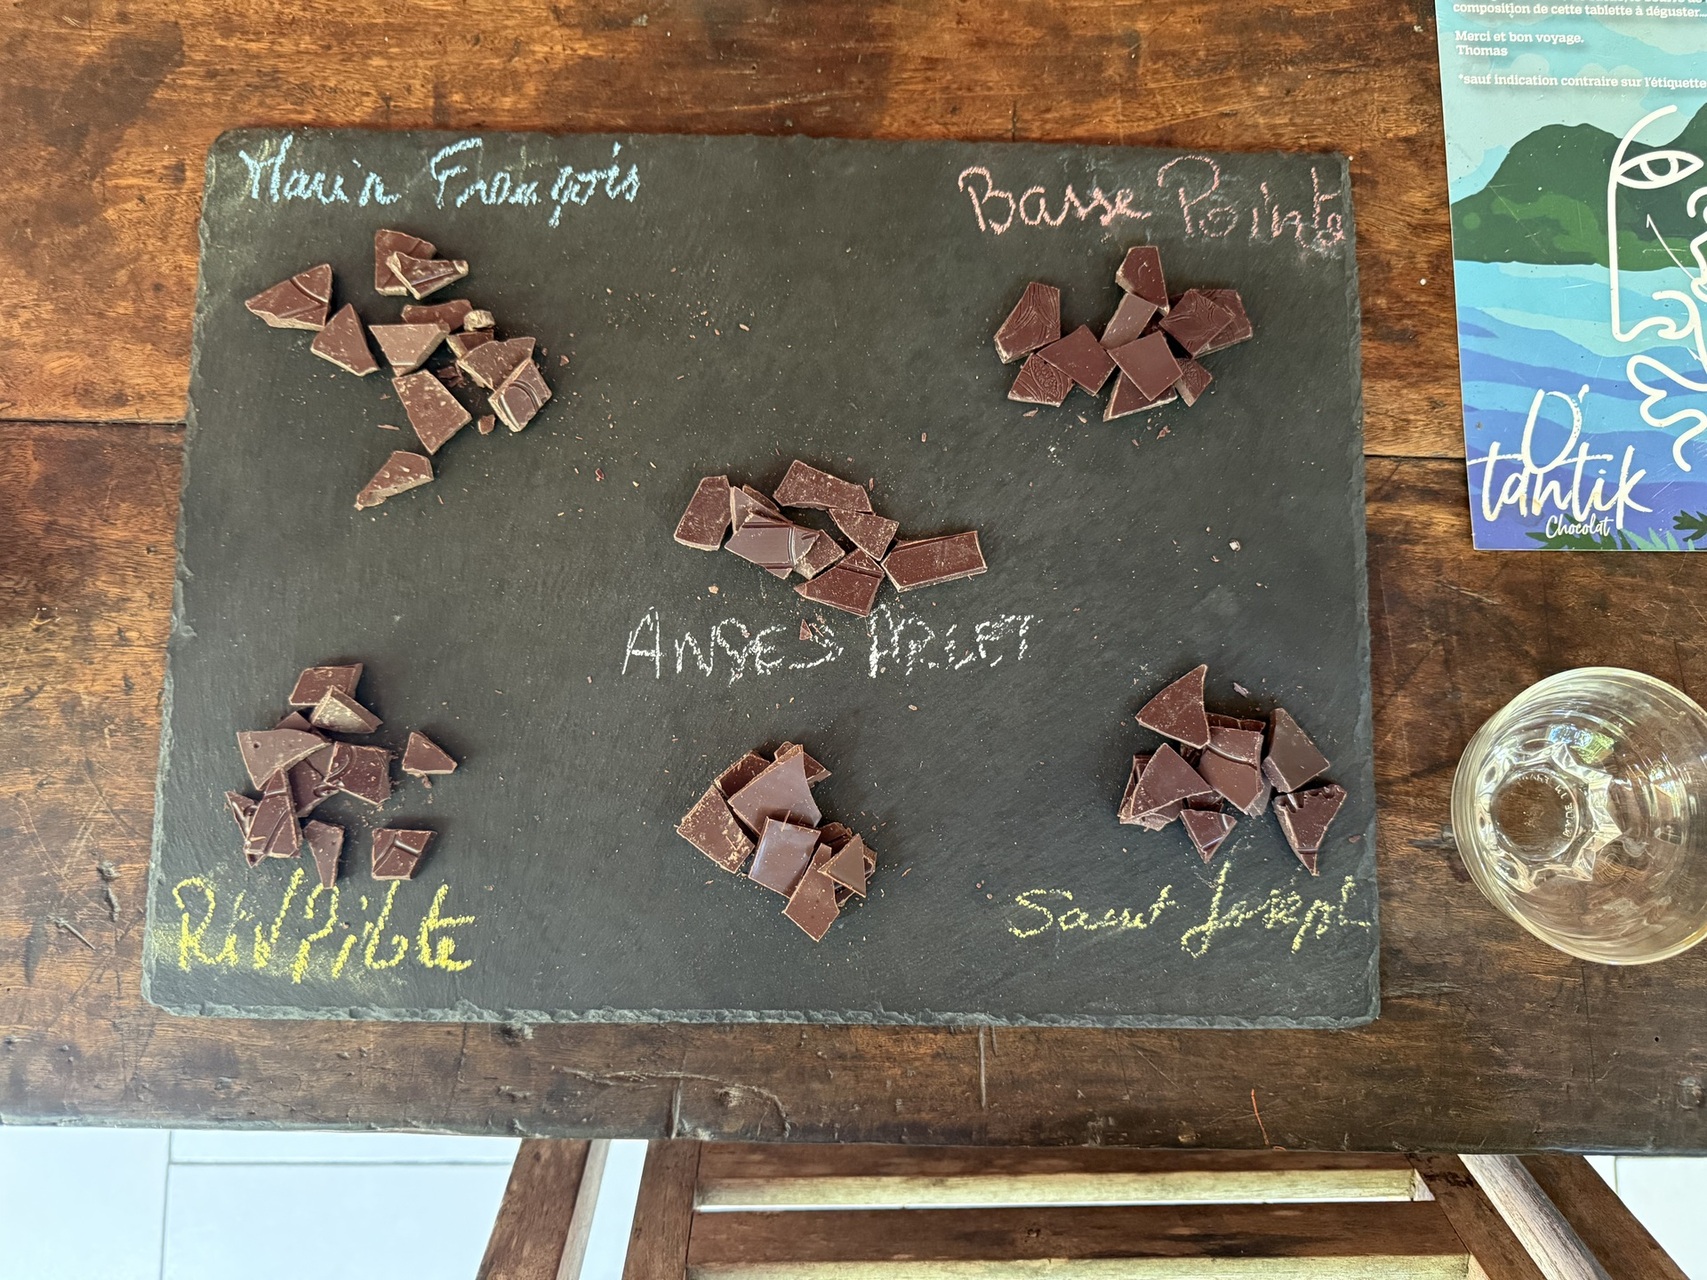 composition de cette tablette à déguster...
Merci et bon voyage.
Thomas
*sauf indication contraire sur l'étiquette
Marin François
Basse Pointe
O'
tantik
Chocolat
ANSES ARLET
Riv Pilote
Saint Joseph